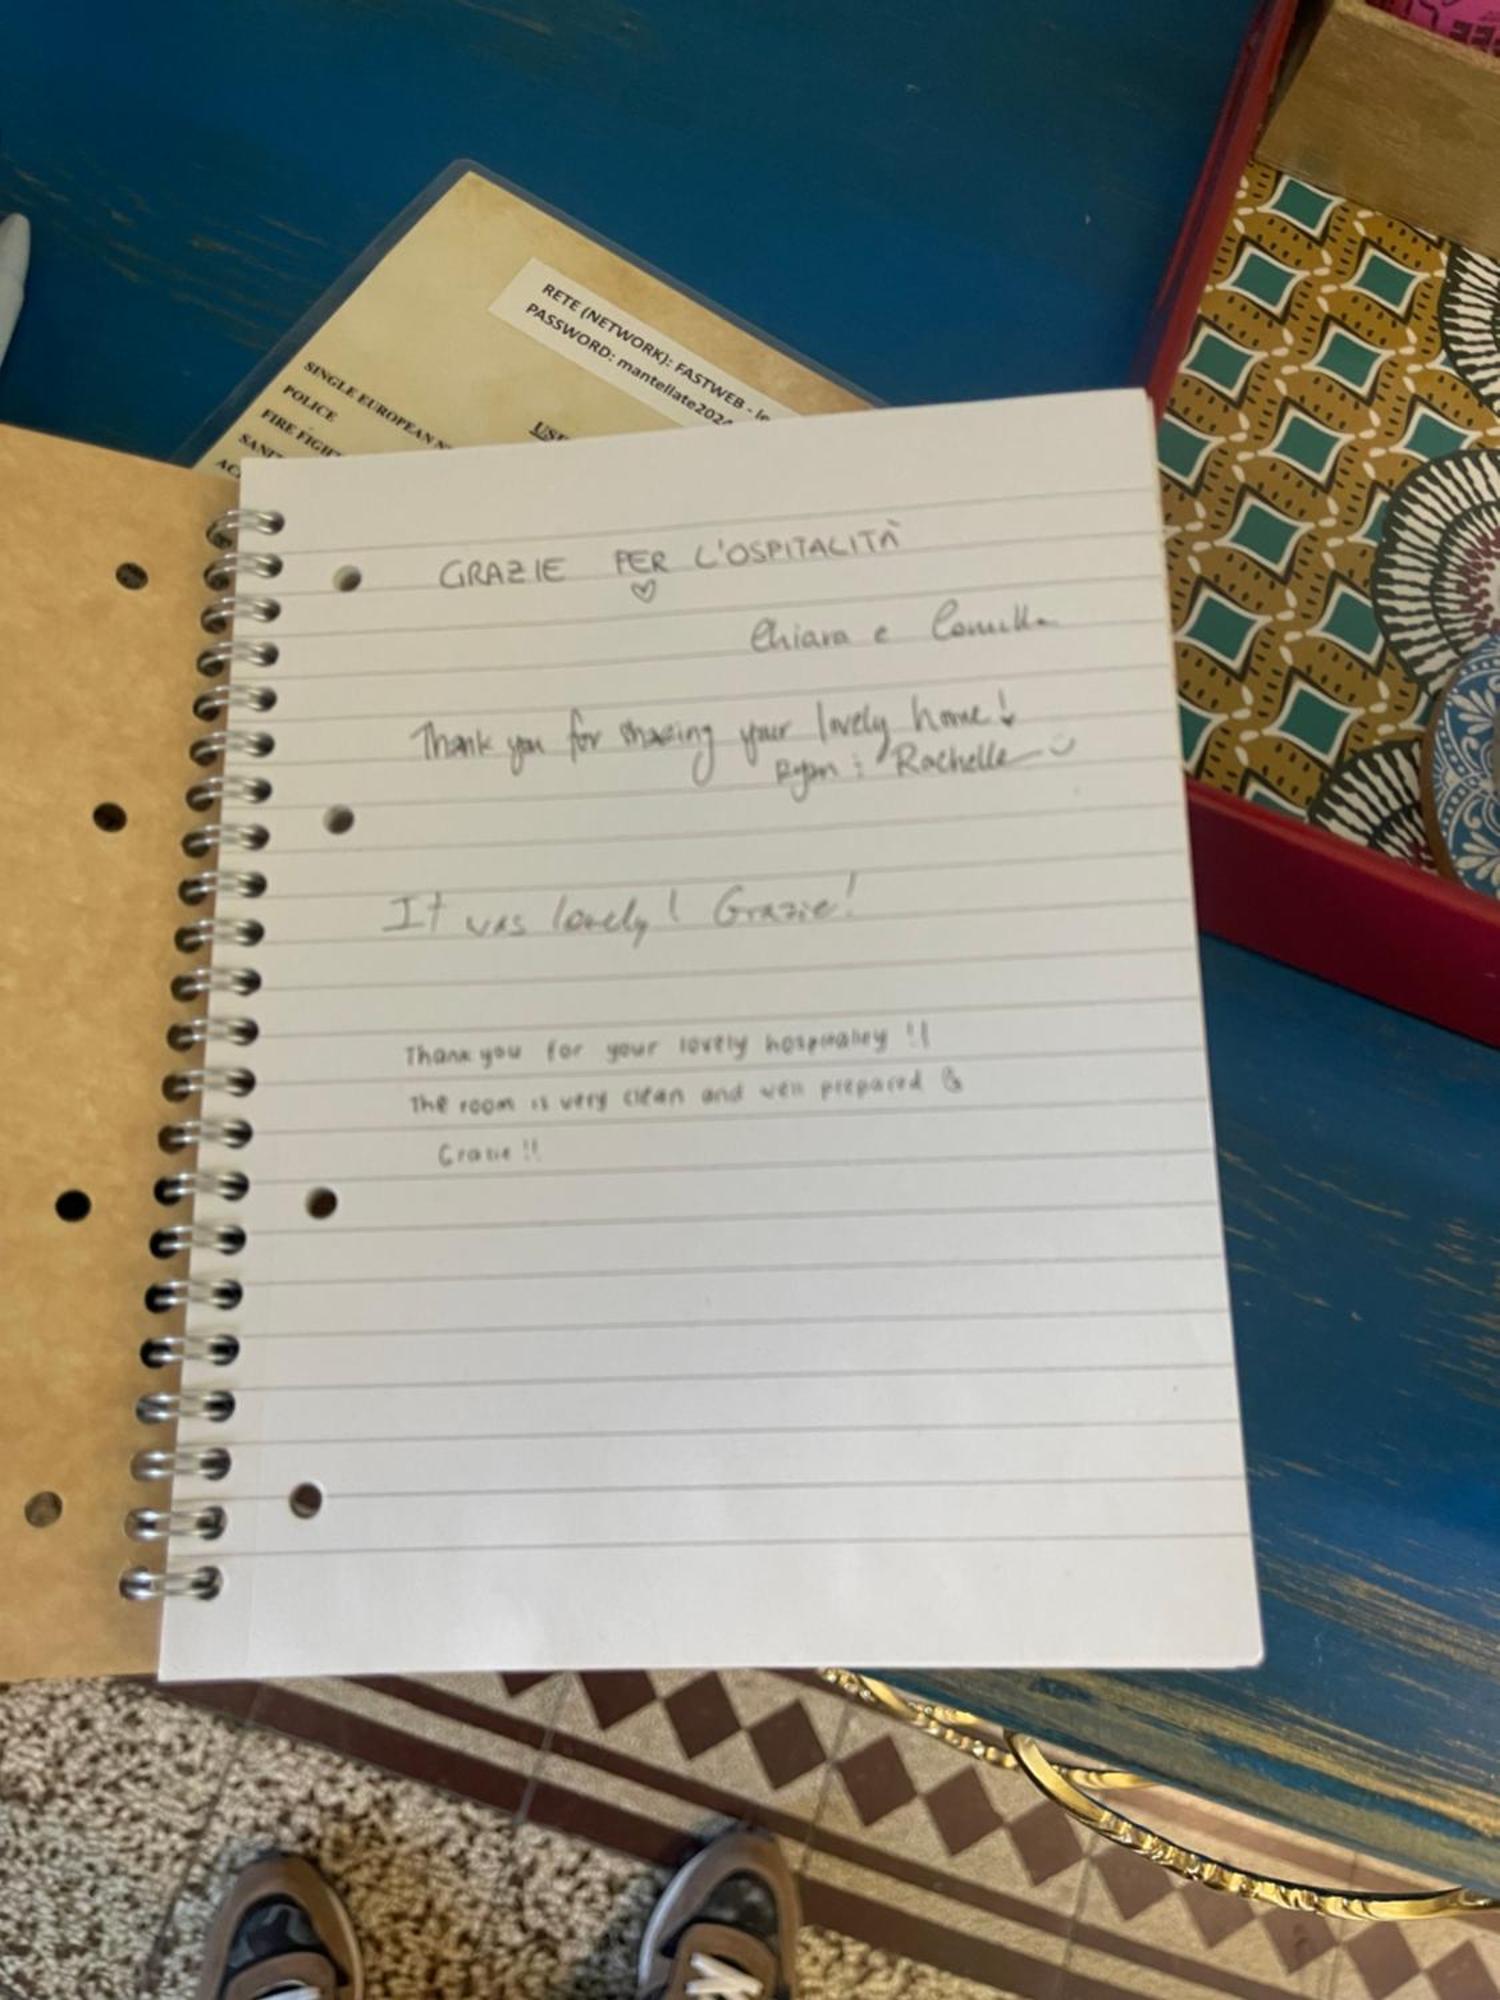 RETE (NETWORK): FASTWEB - le
PASSWORD: mantellate202
SINGLE EUROPEAN N
POLICE
FIRE FIGH
SANI
AC
USE
GRAZIE PER L'OSPITALITÀ
Chiara e Camilla
Thank you for sharing your lovely home!
Ryan & Rachelle
It was lovely! Grazie!
Thank you for your lovely hospitality !!
The room is very clean and well prepared
Grazie !!